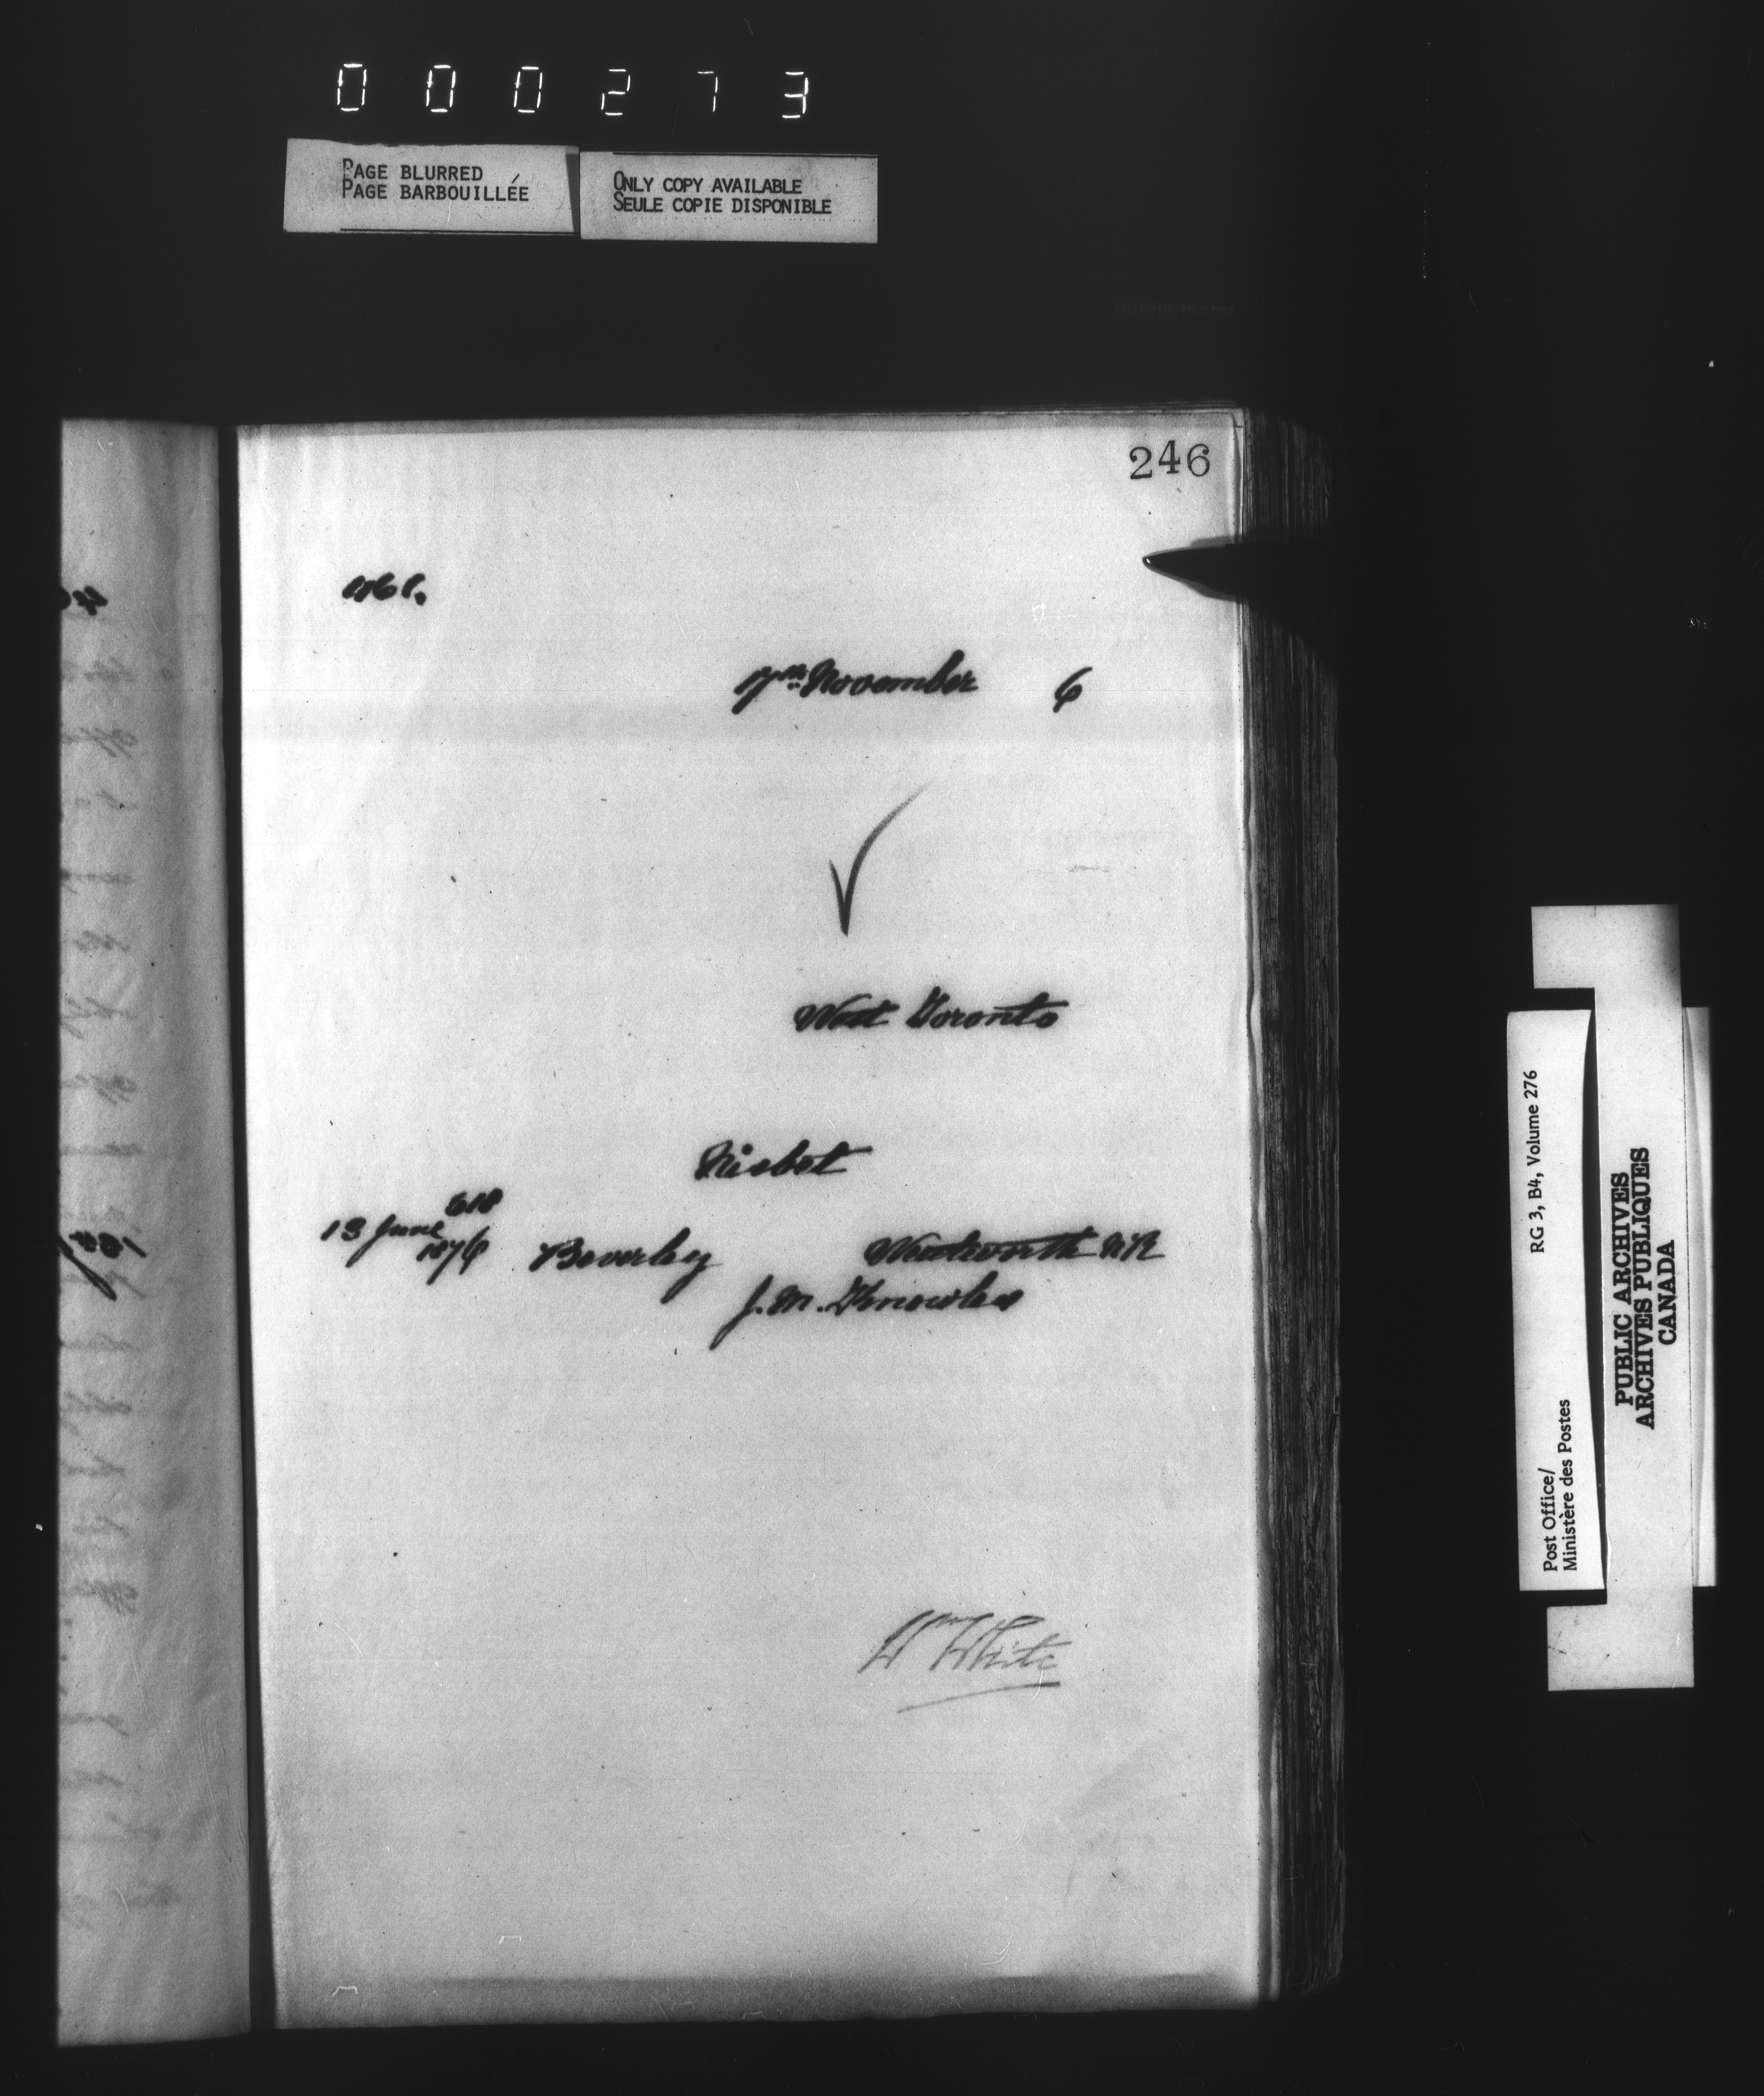 000273
PAGE BLURRED
PAGE BARBOUILLÉE
ONLY COPY AVAILABLE
SEULE COPIE DISPONIBLE
246
461.
17th November 6
West Toronto
Nisbet
618
13 June 1876
Beverley
Wentworth NR
J. M. Knowles
Wm White
RG 3, B4, Volume 276
Post Office/
Ministère des Postes
PUBLIC ARCHIVES
ARCHIVES PUBLIQUES
CANADA